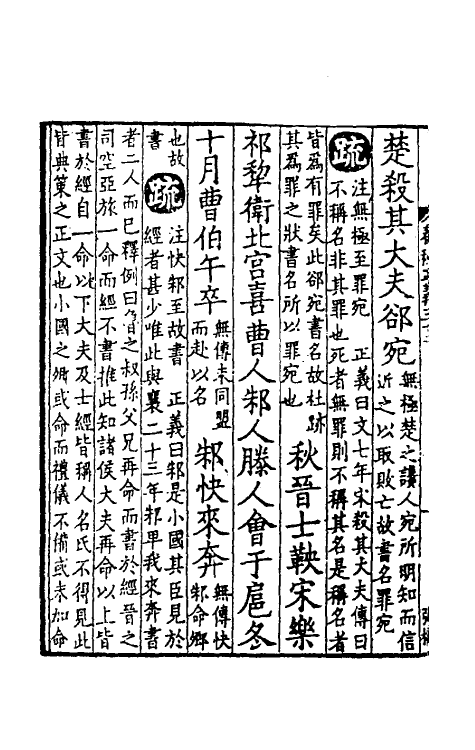 楚殺其大夫郤宛無極楚之讒人宛所明知而信近之以取敗亡故書名罪宛
疏注無極至罪宛　正義曰文七年宋殺其大夫傳曰不稱名非其罪也死者無罪則不稱其名是稱名者
皆為有罪矣此郤宛書名故杜跡其為罪之狀書名所以罪宛也　秋晉士鞅宋樂
祁犂衛北宮喜曹人邾人滕人會于扈冬
十月曹伯午卒無傳未同盟而赴以名　邾快來奔無傳快邾命卿
也故書　疏注快邾至故書　正義曰邾是小國其臣見於經者甚少唯此與襄二十三年邾畀我來奔書
者二人而已釋例曰魯之叔孫父兄再命而書於經晉之司空亞旅一命而經不書推此知諸侯大夫再命以上皆
書於經自一命以下大夫及士經皆稱人名氏不得見此皆典策之正文也小國之卿或命而禮儀不備或未加命